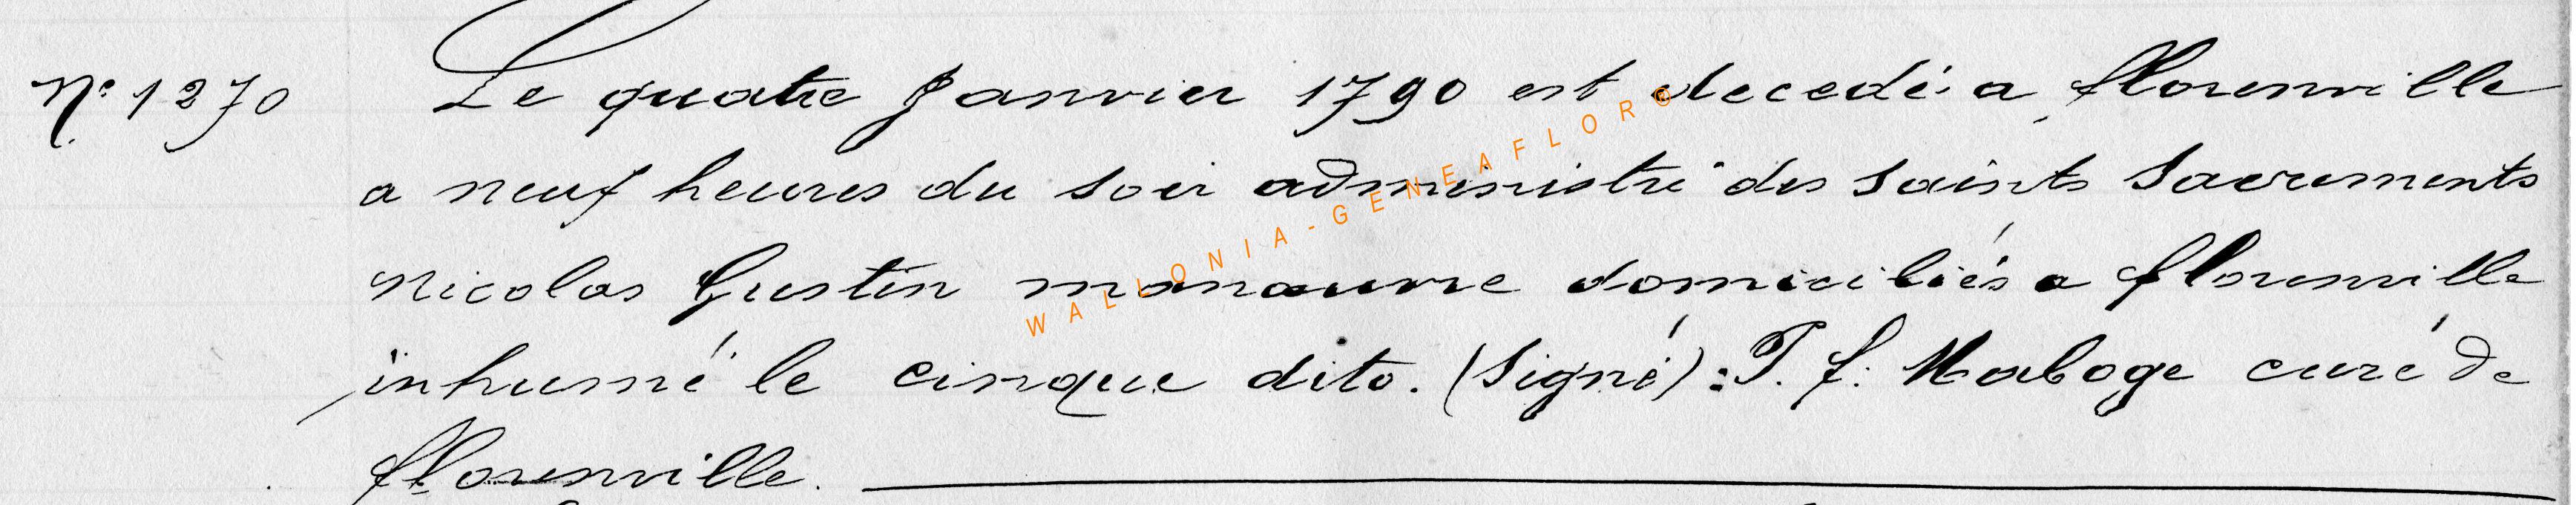 N° 1270 Le quatre Janvier 1790 est decedé a florenville
a neuf heures du soir administré des saints Sacrements
Nicolas Gustin manœuvre domiciliés a florenville
inhumé le cinque dito. (Signé) : P. f. Maboge curé de
florenville.
WALLONIA-GENEAFLOR®